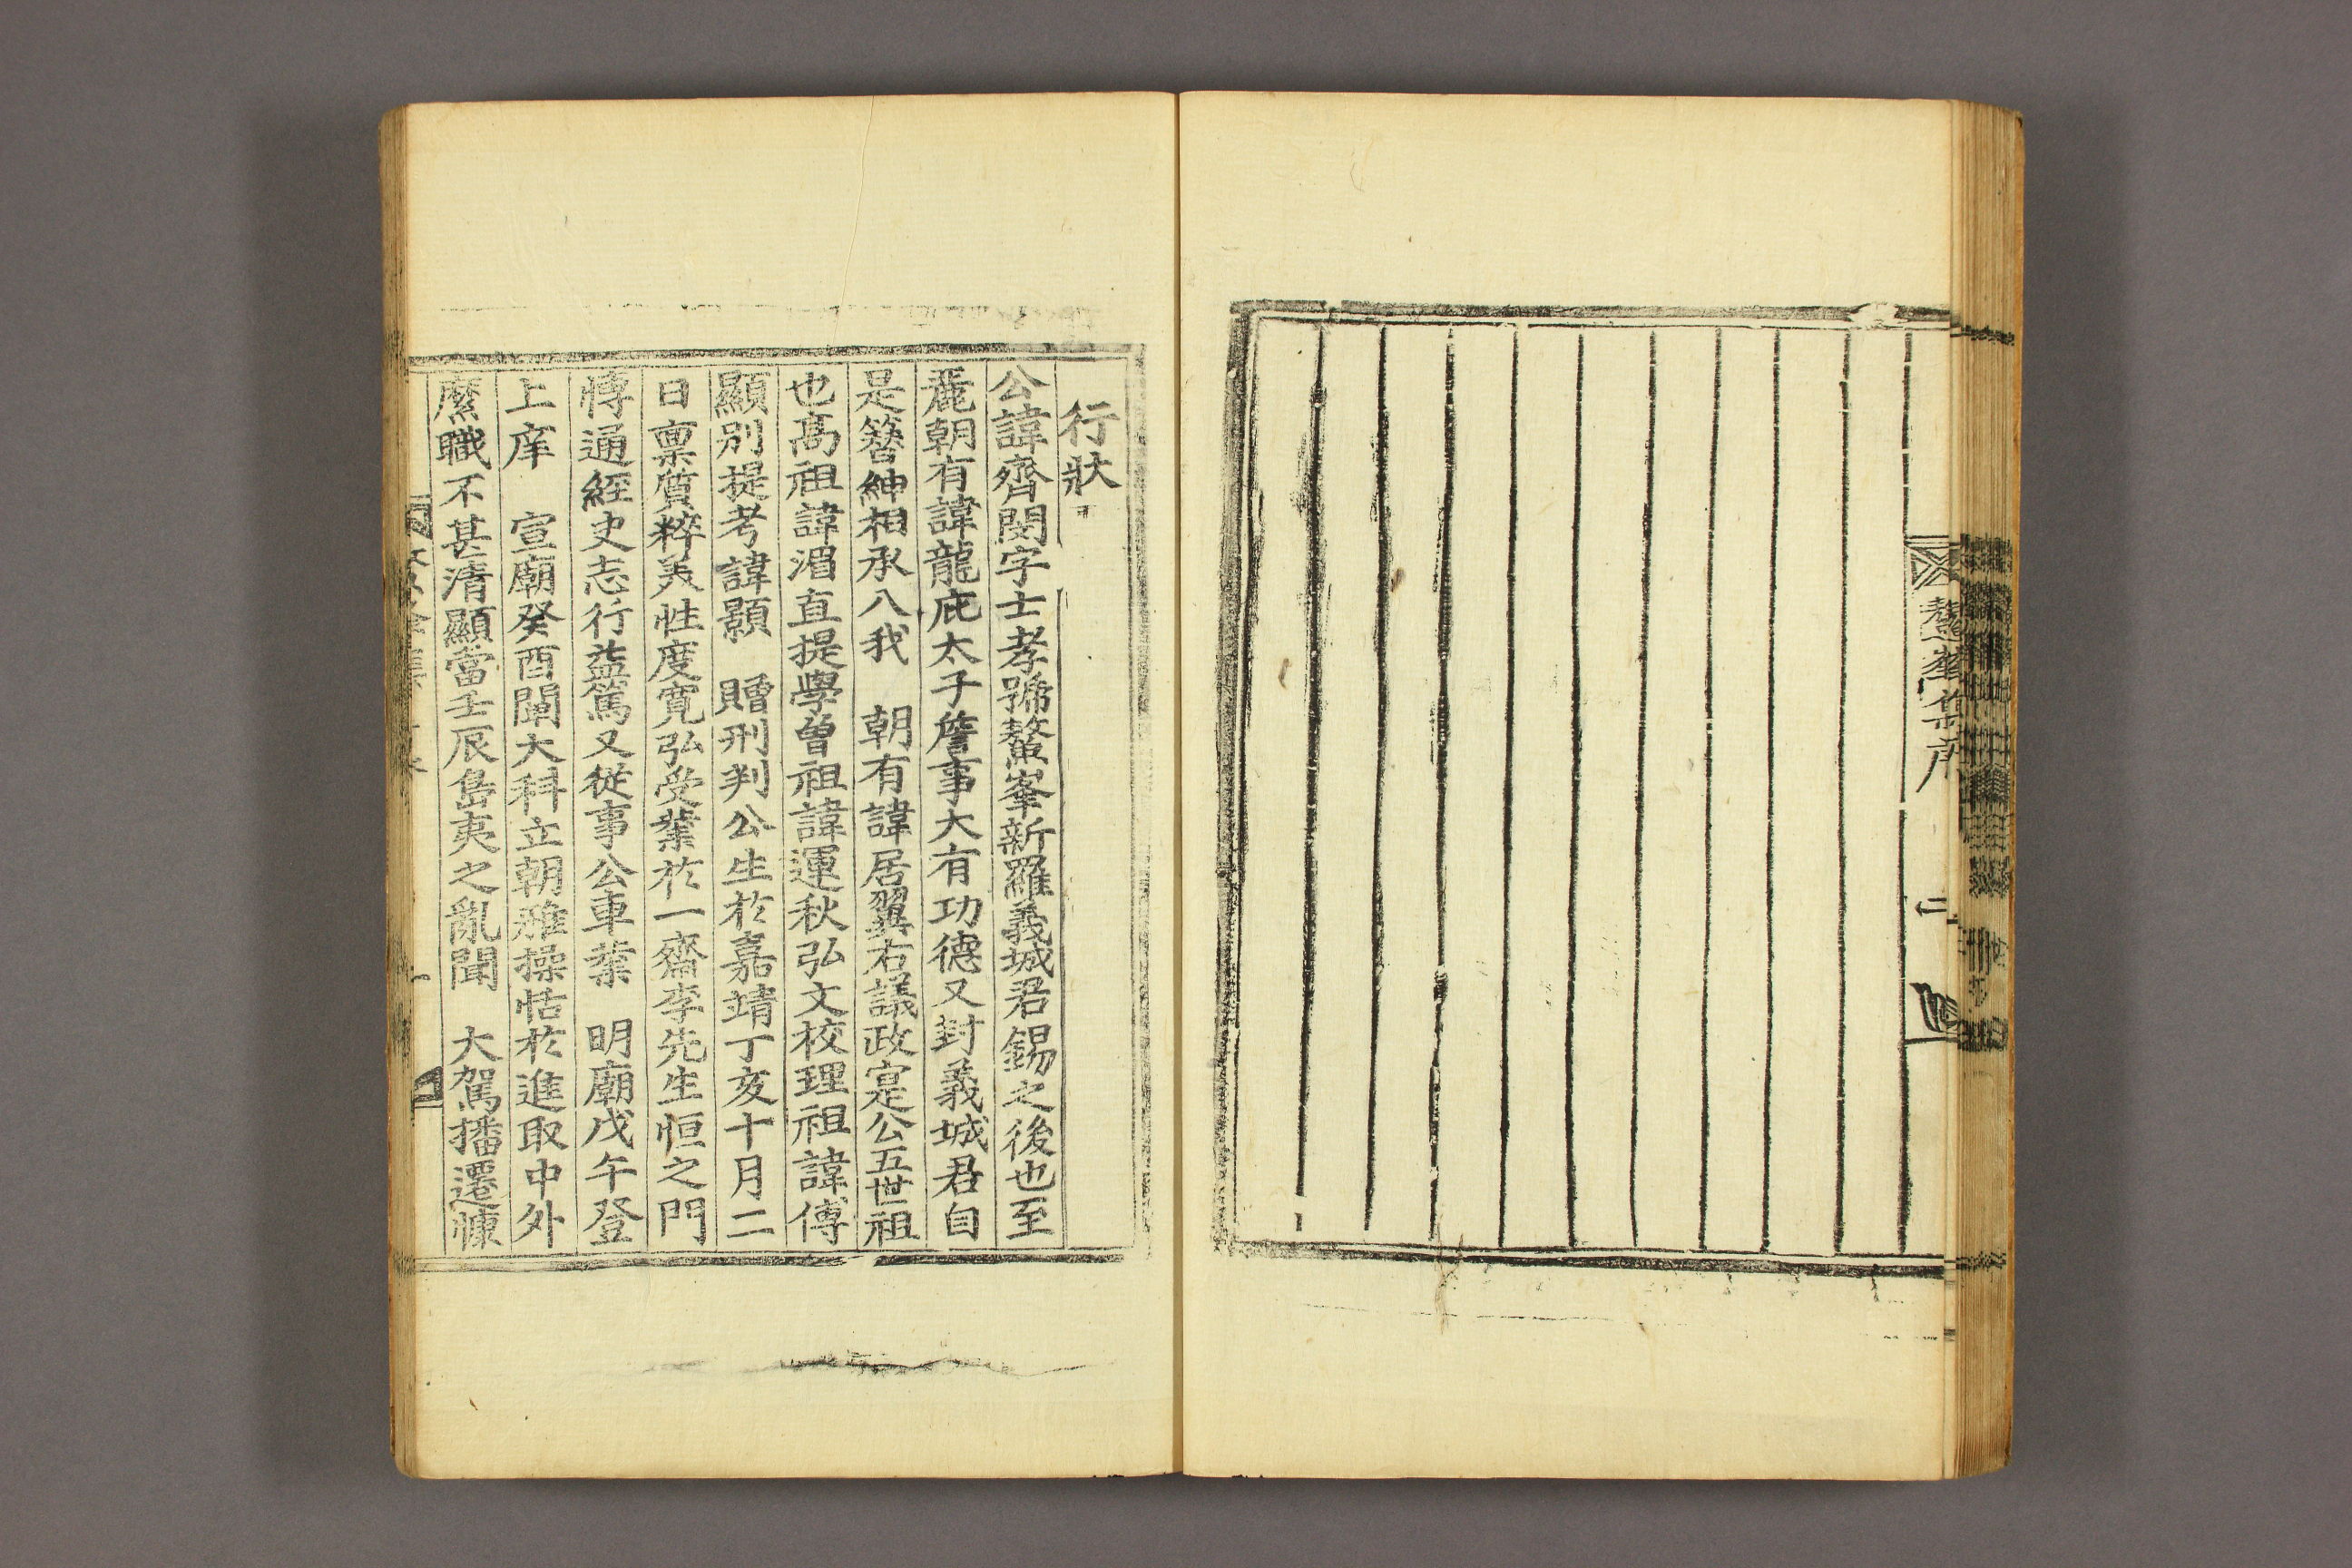 鰲峯集序
二
行狀
公諱齊閔字士孝號鰲峯新羅義城君錫之後也至
麗朝有諱龍庇太子詹事大有功德又封義城君自
是簪紳相承入我 朝有諱居翼右議政寔公五世祖
也高祖諱湄直提學曾祖諱運秋弘文校理祖諱傅
顯別提考諱顥 贈刑判公生於嘉靖丁亥十月二
日稟質粹美性度寬弘受業於一齋李先生恒之門
博通經史志行益篤又從事公車業 明廟戊午登
上庠 宣廟癸酉闡大科立朝雅操恬於進取中外
縻職不甚淸顯當壬辰島夷之亂聞 大駕播遷慷